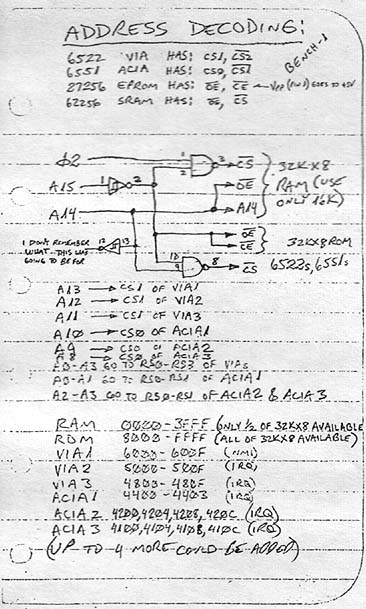 ADDRESS DECODING:
6522 VIA HAS: CS1, CS2
6551 ACIA HAS: CS0, CS1
27256 EPROM HAS: OE, CE ← VPP (PIN 1) GOES TO +5V
62256 SRAM HAS: OE, CS
BENCH-1
Φ2 1 2 3 CS 32KX8
A15 1 2 OE RAM (USE
A14 A14 ONLY 16K)
I DON'T REMEMBER 12 13 OE
WHAT THIS WAS CE 32KX8 ROM
GOING TO BE FOR 10 9 8 CS 6522s, 6551s
A13 → CS1 OF VIA1
A12 → CS1 OF VIA2
A11 → CS1 OF VIA3
A10 → CS0 OF ACIA1
A9 → CS0 OF ACIA2
A8 → CS0 OF ACIA3
A0-A3 GO TO RS0-RS3 OF VIAs
A0-A1 GO TO RS0-RS1 OF ACIA1
A2-A3 GO TO RS0-RS1 OF ACIA2 & ACIA3
RAM 0000-3FFF (ONLY 1/2 OF 32KX8 AVAILABLE)
ROM 8000-FFFF (ALL OF 32KX8 AVAILABLE)
VIA1 6000-600F (NMI)
VIA2 5000-500F (IRQ)
VIA3 4800-480F (IRQ)
ACIA1 4400-4403 (IRQ)
ACIA2 4200,4204,4208,420C (IRQ)
ACIA3 4100,4104,4108,410C (IRQ)
(UP TO 4 MORE COULD BE ADDED)